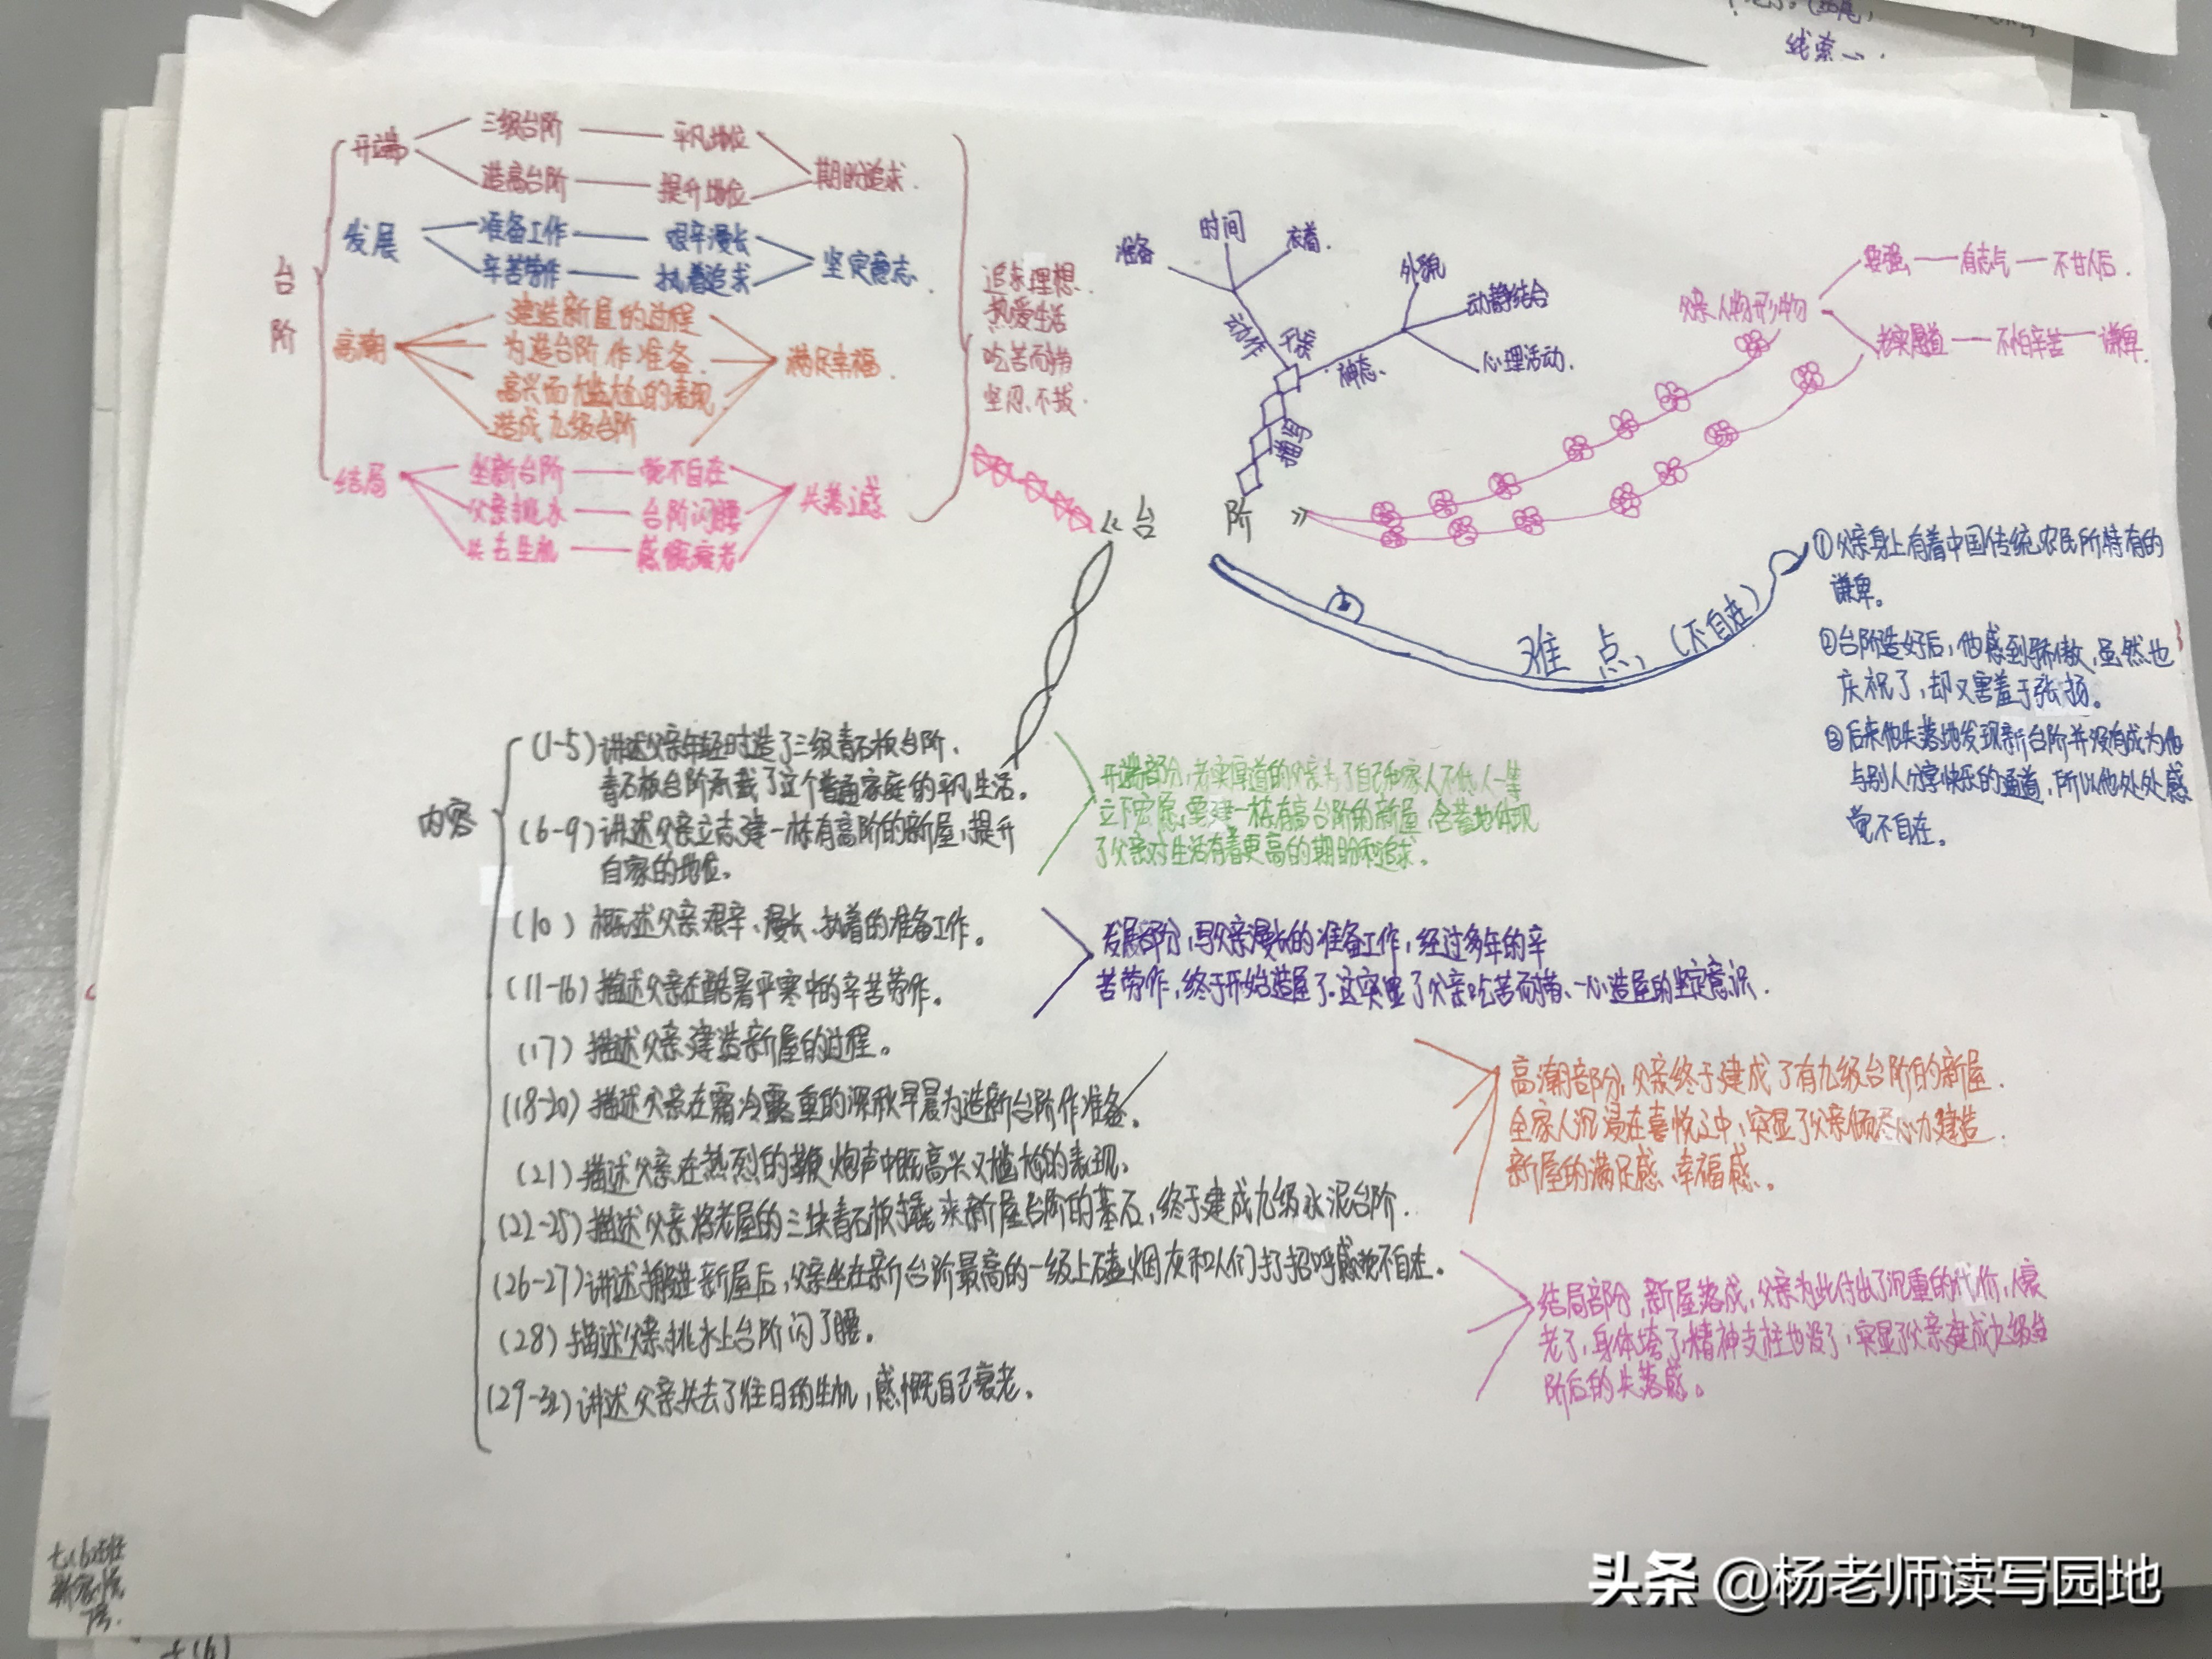 线索
台阶
开端
三级台阶
平凡地位
造高台阶
提升地位
期盼追求.
发展
准备工作
艰辛漫长
辛苦劳作
执着追求
坚定意志.
高潮
建造新屋的过程
为造台阶作准备.
高兴而尴尬的表现
造成九级台阶
满足幸福.
结局
坐新台阶
觉不自在
父亲挑水
台阶闪腰
失去生机
感慨衰老
失落之感
追求理想.
热爱生活
吃苦而捞
坚忍、不拔.
《台 阶》
描写
父亲
动作
准备
时间
衣着.
神态.
外貌
动静结合
心理活动.
父亲人物形物
要强
有志气
不甘人后.
老实厚道
不怕辛苦
谦卑.
难点,(不自在)
①父亲身上有着中国传统农民所特有的
谦卑。
②台阶造好后,他感到骄傲,虽然也
庆祝了,却又害羞于张扬。
③后来他失落地发现新台阶并没有成为他
与别人分享快乐的通道,所以他处处感
觉不自在。
内容
(1-5)讲述父亲年轻时造了三级青石板台阶.
青石板台阶承载了这个普通家庭的平凡生活。
(6-9)讲述父亲立志建一栋有高阶的新屋,提升
自家的地位。
(10)概述父亲艰辛、漫长、执着的准备工作。
(11-16)描述父亲在酷暑严寒中的辛苦劳作。
(17)描述父亲建造新屋的过程。
(18-20)描述父亲在霜冷露重的深秋早晨为造新台阶作准备。
(21)描述父亲在热烈的鞭炮声中既高兴又尴尬的表现。
(22-25)描述父亲将老屋的三块青石板来新屋台阶的基石,终于建成九级水泥台阶.
(26-27)讲述搬进新屋后,父亲坐在新台阶最高的一级上磕烟灰和人们打招呼感觉不自在。
(28)描述父亲挑水上台阶闪了腰。
(29-32)讲述父亲失去了往日的生机,感慨自己衰老。
开端部分,老实厚道的父亲为了自己和家人不低人一等
立下宏愿,要建一栋有高台阶的新屋,含蓄地体现
了父亲对生活有着更高的期盼和追求。
发展部分,写父亲漫长的准备工作,经过多年的辛
苦劳作,终于开始造屋了.这突显了父亲吃苦而捞、一心造屋的坚定意识.
高潮部分,父亲终于建成了有九级台阶的新屋.
全家人沉浸在喜悦之中,突显了父亲倾尽心力建造
新屋的满足感、幸福感。
结局部分,新屋落成,父亲为此付出了沉重的代价,人衰
老了,身体垮了,精神支柱也没了,突显了父亲建成九级台
阶后的失落感。
七(6)班
7号.
七(6)
头条 @杨老师读写园地